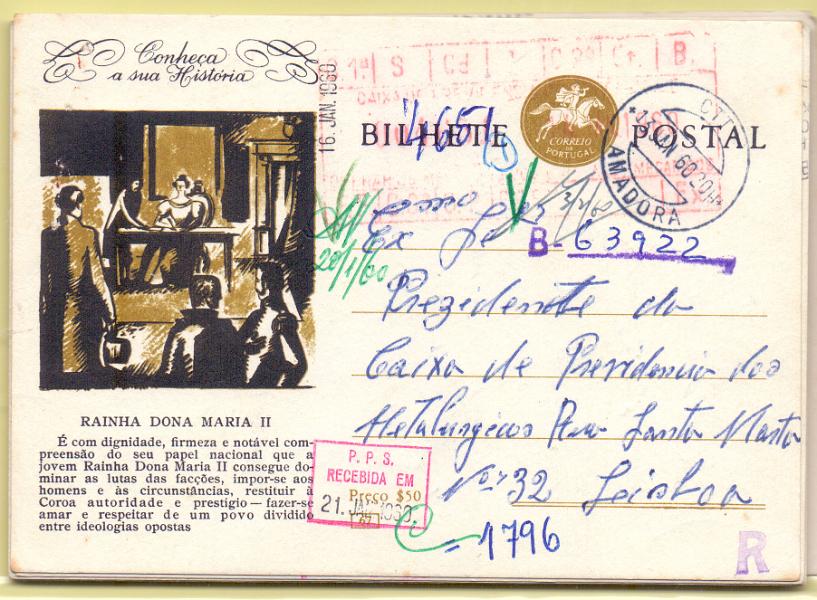 Conheça
a sua História
16. JAN. 1960
1ª S Cd C Cr. B.
4651
BILHETE POSTAL
CORREIO
DE
PORTUGAL
CTT
60 20H
AMADORA
2/2/60
20/1/60
Ex
B-63922
Prezidenete da
Caixa de Previdencia dos
Metalurgicos Rua Santa Marta
Nº 32 Leisboa
= 1796
RAINHA DONA MARIA II
É com dignidade, firmeza e notável com-
preensão do seu papel nacional que a
jovem Rainha Dona Maria II consegue do-
minar as lutas das facções, impor-se aos
homens e às circunstâncias, restituir à
Coroa autoridade e prestígio — fazer-se
amar e respeitar de um povo dividido
entre ideologias opostas
P. P. S.
RECEBIDA EM
Preço $50
21. JAN. 1960
67
R